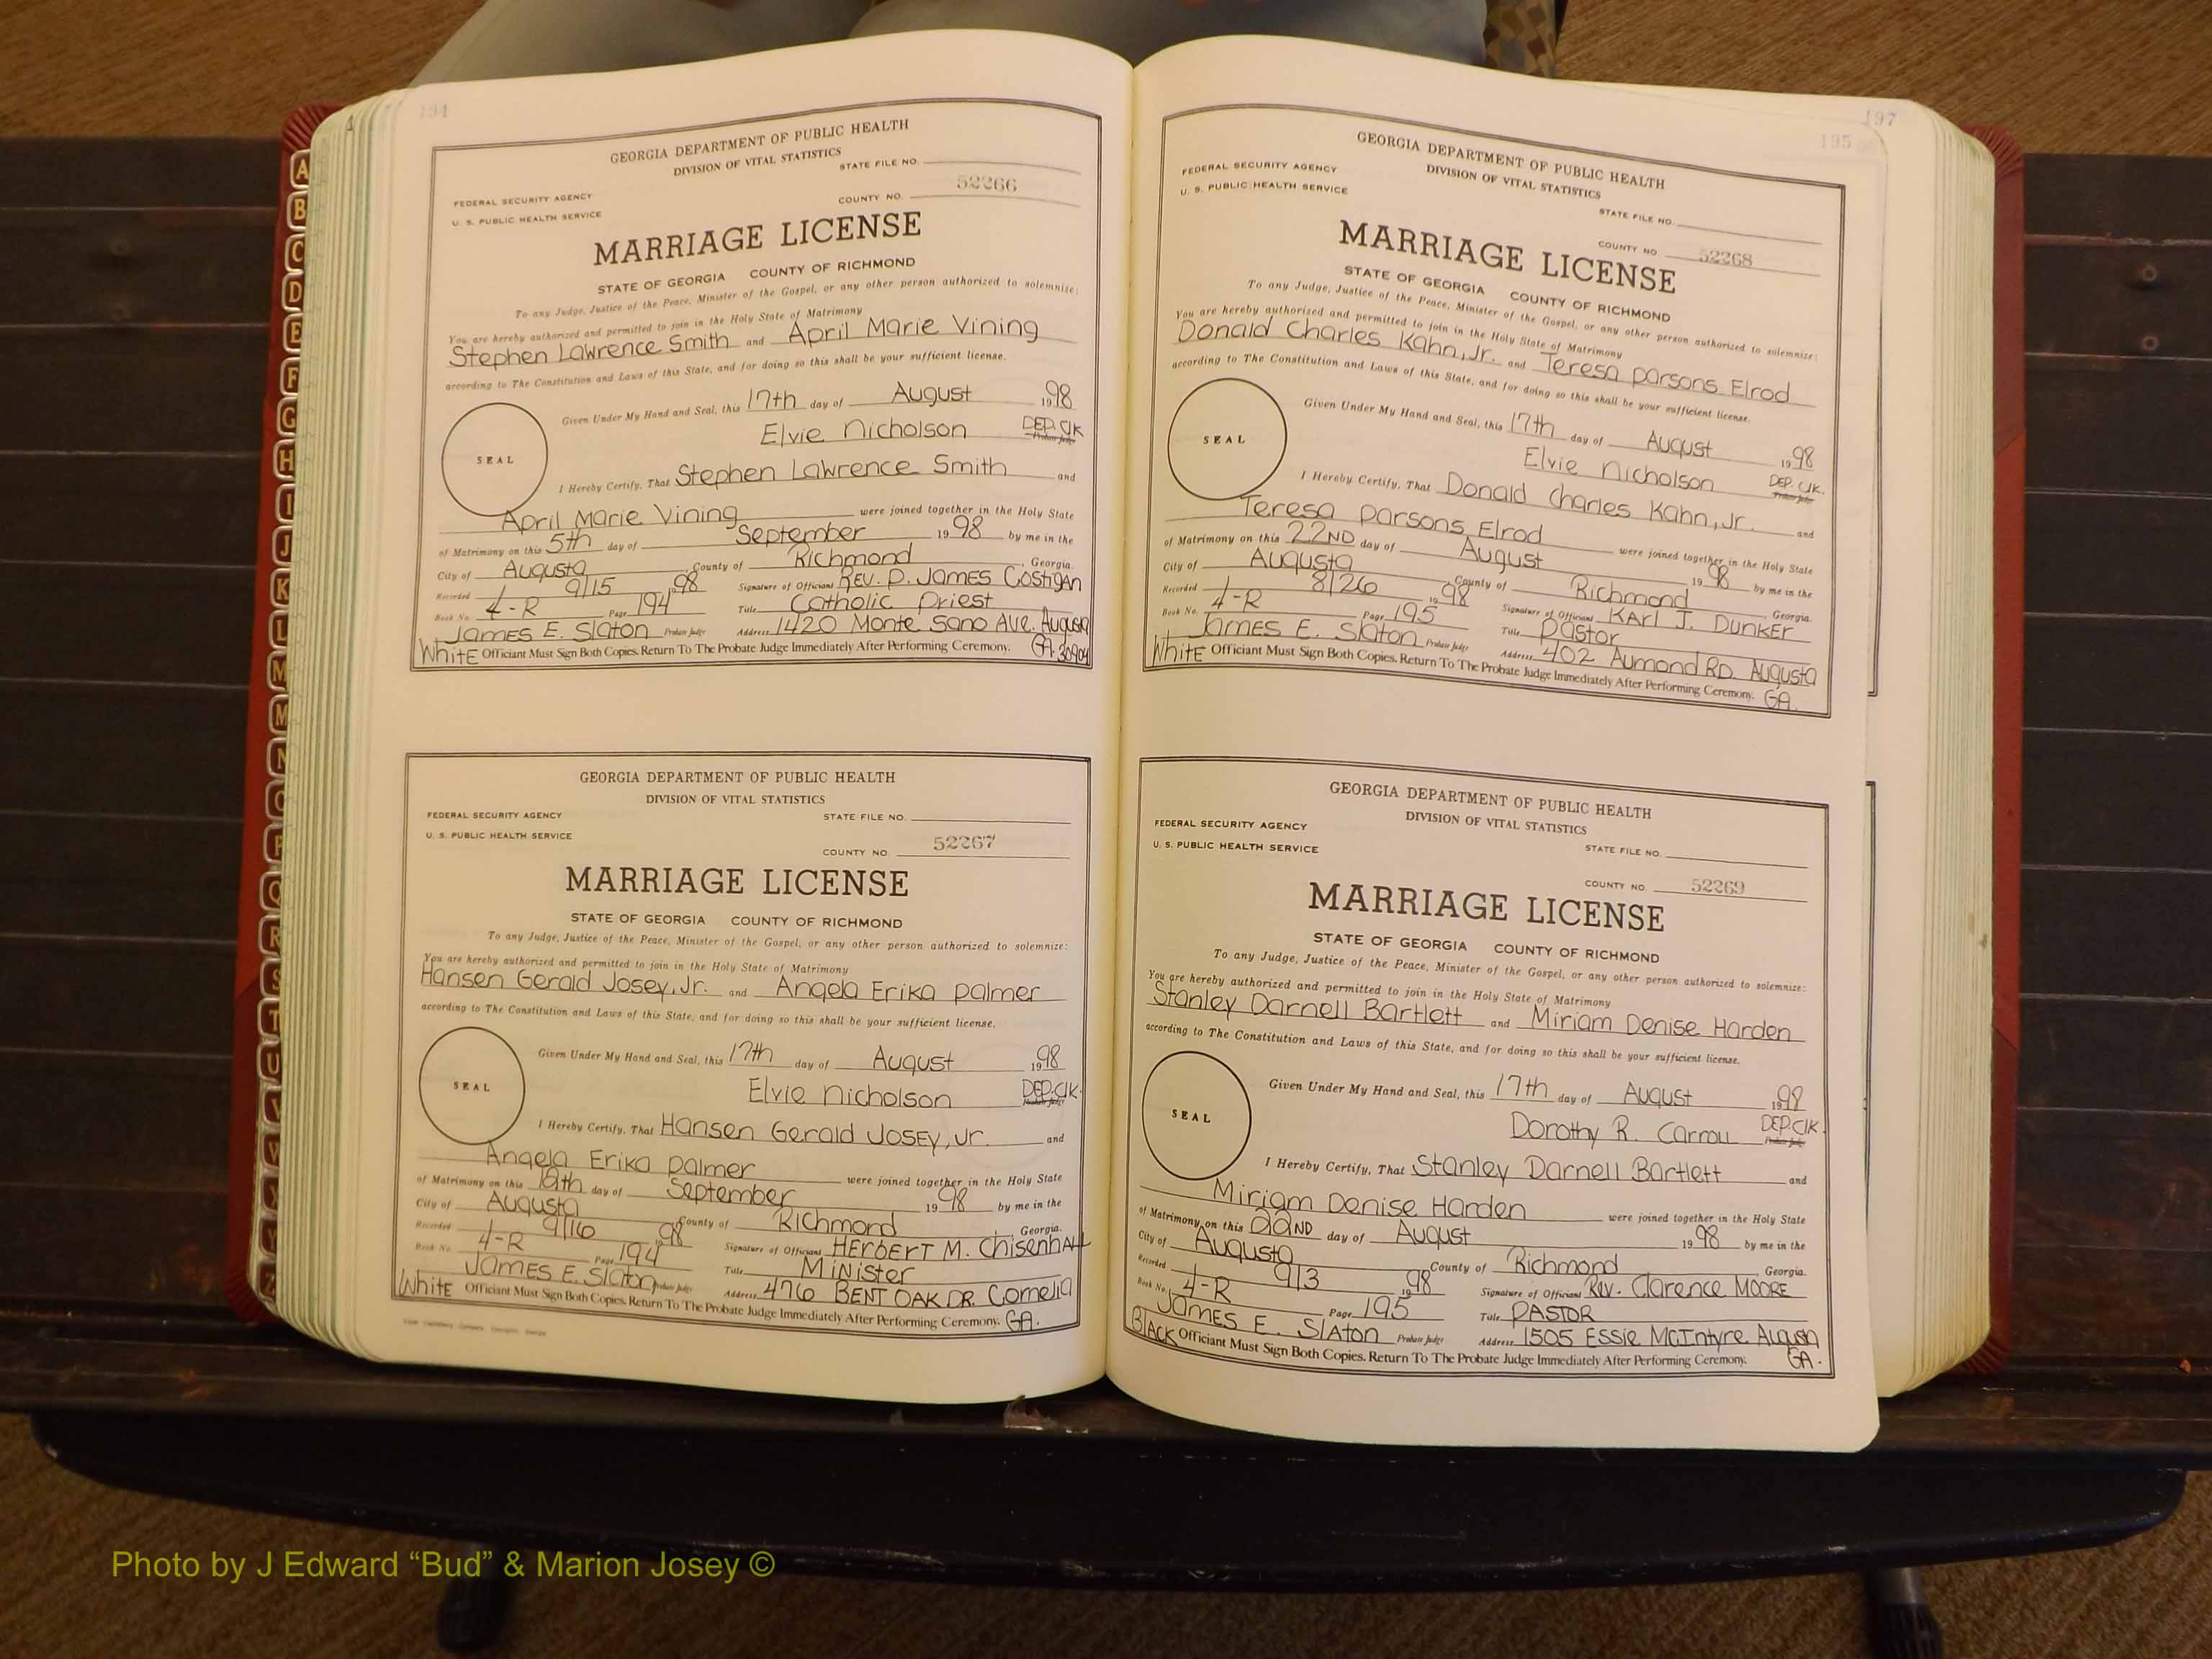 194
GEORGIA DEPARTMENT OF PUBLIC HEALTH
DIVISION OF VITAL STATISTICS
STATE FILE NO.
FEDERAL SECURITY AGENCY
U. S. PUBLIC HEALTH SERVICE
COUNTY NO. 52266
MARRIAGE LICENSE
STATE OF GEORGIA COUNTY OF RICHMOND
To any Judge, Justice of the Peace, Minister of the Gospel, or any other person authorized to solemnize:
You are hereby authorized and permitted to join in the Holy State of Matrimony
Stephen Lawrence Smith and April Marie Vining
according to The Constitution and Laws of this State, and for doing so this shall be your sufficient license.
Given Under My Hand and Seal, this 17th day of August 1998
SEAL
Elvie Nicholson DEP. Clk Probate Judge
I Hereby Certify, That Stephen Lawrence Smith and
April Marie Vining were joined together in the Holy State
of Matrimony on this 5th day of September 1998 by me in the
City of Augusta, County of Richmond, Georgia.
Recorded 9/15 1998 Signature of Officiant REV. P. JAMES COSTIGAN
Book No. 4-R Page 194 Title Catholic Priest
JAMES E. Slaton Probate Judge Address 1420 Monte Sano Ave. Augusta
White Officiant Must Sign Both Copies. Return To The Probate Judge Immediately After Performing Ceremony. GA. 30904
GEORGIA DEPARTMENT OF PUBLIC HEALTH
DIVISION OF VITAL STATISTICS
FEDERAL SECURITY AGENCY STATE FILE NO.
U. S. PUBLIC HEALTH SERVICE
COUNTY NO. 52267
MARRIAGE LICENSE
STATE OF GEORGIA COUNTY OF RICHMOND
To any Judge, Justice of the Peace, Minister of the Gospel, or any other person authorized to solemnize:
You are hereby authorized and permitted to join in the Holy State of Matrimony
Hansen Gerald Josey, Jr. and Angela Erika Palmer
according to The Constitution and Laws of this State, and for doing so this shall be your sufficient license.
Given Under My Hand and Seal, this 17th day of August 1998
SEAL
Elvie Nicholson DEP. Clk. Probate Judge
I Hereby Certify, That Hansen Gerald JOSEY, Jr. and
Angela Erika Palmer were joined together in the Holy State
of Matrimony on this day of September 1998 by me in the
City of Augusta, County of Richmond, Georgia.
Recorded 9/16 1998 Signature of Officiant HERBERT M. ChisenhALL
Book No. 4-R Page 194 Title MiNister
JAMES E. Slaton Probate Judge Address 476 BENT OAK DR. Cornelia
White Officiant Must Sign Both Copies. Return To The Probate Judge Immediately After Performing Ceremony. GA.
197
195
GEORGIA DEPARTMENT OF PUBLIC HEALTH
DIVISION OF VITAL STATISTICS
FEDERAL SECURITY AGENCY
U. S. PUBLIC HEALTH SERVICE
STATE FILE NO.
COUNTY NO. 52268
MARRIAGE LICENSE
STATE OF GEORGIA COUNTY OF RICHMOND
To any Judge, Justice of the Peace, Minister of the Gospel, or any other person authorized to solemnize:
You are hereby authorized and permitted to join in the Holy State of Matrimony
Donald Charles Kahn, Jr. and Teresa Parsons Elrod
according to The Constitution and Laws of this State, and for doing so this shall be your sufficient license.
Given Under My Hand and Seal, this 17th day of August 1998
SEAL
Elvie Nicholson DEP. Clk. Probate Judge
I Hereby Certify, That Donald Charles Kahn, Jr. and
Teresa Parsons Elrod were joined together in the Holy State
of Matrimony on this 22ND day of August 1998 by me in the
City of Augusta, County of Richmond, Georgia.
Recorded 8/26 1998 Signature of Officiant KARl J. DUNKER
Book No. 4-R Page 195 Title Pastor
JAMES E. Slaton Probate Judge Address 402 Aumond RD. Augusta
White Officiant Must Sign Both Copies. Return To The Probate Judge Immediately After Performing Ceremony. GA.
GEORGIA DEPARTMENT OF PUBLIC HEALTH
DIVISION OF VITAL STATISTICS
FEDERAL SECURITY AGENCY
U. S. PUBLIC HEALTH SERVICE
STATE FILE NO.
COUNTY NO. 52269
MARRIAGE LICENSE
STATE OF GEORGIA COUNTY OF RICHMOND
To any Judge, Justice of the Peace, Minister of the Gospel, or any other person authorized to solemnize:
You are hereby authorized and permitted to join in the Holy State of Matrimony
Stanley Darnell Bartlett and Miriam Denise Harden
according to The Constitution and Laws of this State, and for doing so this shall be your sufficient license.
Given Under My Hand and Seal, this 17th day of August 1998
SEAL
Dorothy R. Carroll DEP. Clk. Probate Judge
I Hereby Certify, That Stanley Darnell Bartlett and
Miriam Denise Harden were joined together in the Holy State
of Matrimony on this 22ND day of August 1998 by me in the
City of Augusta, County of Richmond, Georgia.
Recorded 9/3 1998 Signature of Officiant Rev. Clarence MOORE
Book No. 4-R Page 195 Title PASTOR
JAMES E. SlAton Probate Judge Address 1505 Essie McIntyre Augusta
BlACK Officiant Must Sign Both Copies. Return To The Probate Judge Immediately After Performing Ceremony. GA.
A
B
C
D
E
F
G
H
I
J
K
L
M
M
N
O
P
Q
R
S
T
U
V
Y
Z
Photo by J Edward “Bud” & Marion Josey ©